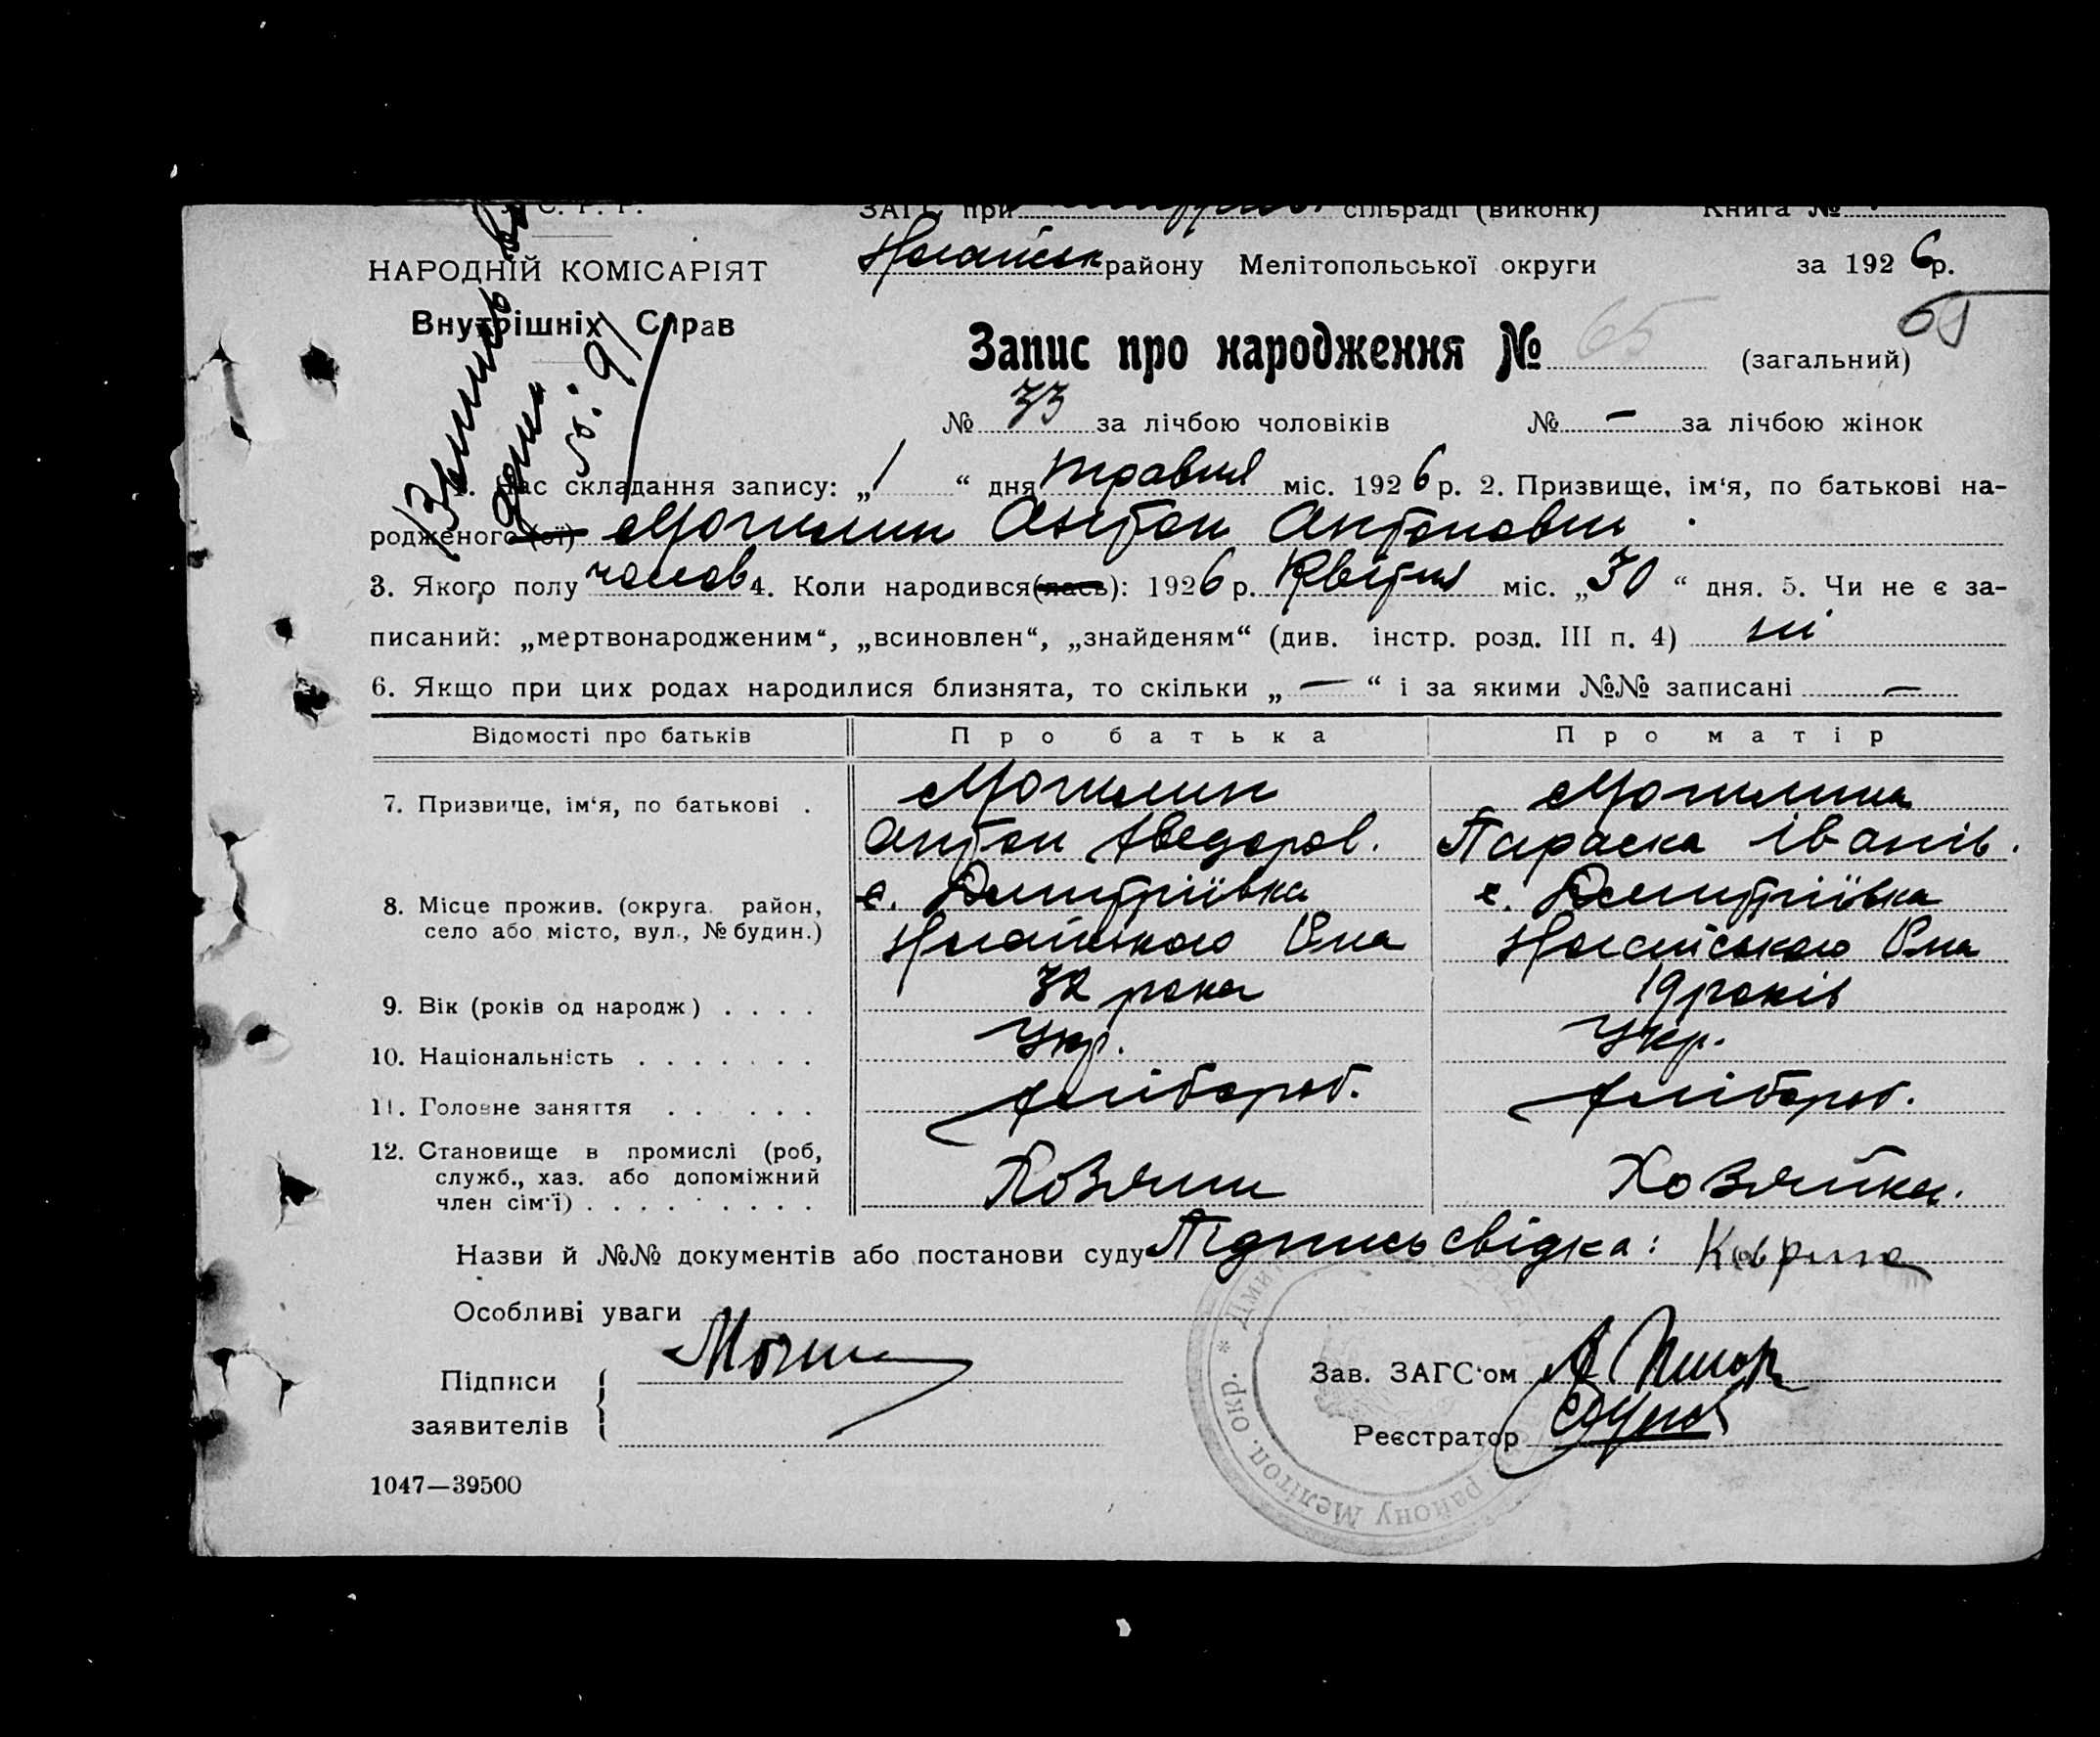 С. Р. Р.
ЗАГС при сільраді (виконк) Книга №
НАРОДНІЙ КОМІСАРІЯТ
Внутрішніх Справ
Ногайськ району Мелітопольської округи за 1926 р.
Запис про народження № 65 (загальний) 65
№ 33 за лічбою чоловіків № — за лічбою жінок
1. Час складання запису: „1“ дня травня міс. 1926 р. 2. Призвище, ім‘я, по батькові на-
родженого (ої) Могилин Антон Антонович
3. Якого полу чолов 4. Коли народився (лась): 1926 р. Квітня міс. „30“ дня. 5. Чи не є за-
писаний: „мертвонародженим“, „всиновлен“, „знайденям“ (див. інстр. розд. III п. 4) ні
6. Якщо при цих родах народилися близнята, то скільки „—“ і за якими №№ записані —
Відомості про батьків Про батька Про матір
7. Призвище, ім‘я, по батькові . Могилин Могилина
Антон Хведоров. Параска Іванів.
8. Місце прожив. (округа, район,
село або місто, вул., № будин.)
с. Дмитріївка с. Дмитріївка
Ногайського Р-на Ногайського Р-на
9. Вік (років од народж) . . . . 32 рока 19 років
10. Національність . . . . . . . Укр. Укр.
11. Головне заняття . . . . . . хлібороб. хлібороб.
12. Становище в промислі (роб,
служб., хаз. або допоміжний
член сім‘ї) . . . . . . . . Хозяин Хозяйка.
Назви й №№ документів або постанови суду Підпись свідка:
Особливі уваги
Підписи
заявителів
Зав. ЗАГС‘ом
Реєстратор
району Мелітоп. окр. *
1047—39500